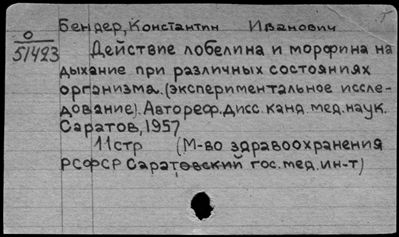 Бендер, Константин Иванович
О
51423
Действие лобелина и морфина на
дыхание при различных состояниях
организма. (экспериментальное иссле-
дование). Автореф. дисс. канд. мед. наук.
Саратов, 1957
11стр (М-во здравоохранения
РСФСР Саратовский гос. мед. ин-т)